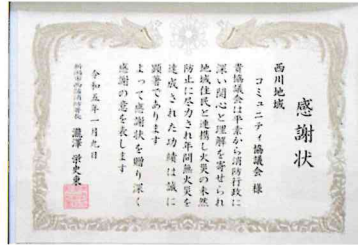 感謝状
西川地域
コミュニティ協議会 様
貴協議会は平素から消防行政に
深い関心と理解を寄せられ
地域住民と連携し火災の未然
防止に尽力され年間無火災を
達成された功績は誠に
顕著であります
よって感謝状を贈り深く
感謝の意を表します
令和五年一月九日
新潟市西蒲消防署長
瀧澤 栄史東